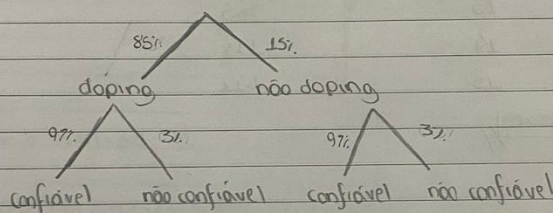 85% 15%
doping não doping
97% 3% 97% 3%
confiável não confiável confiável não confiável